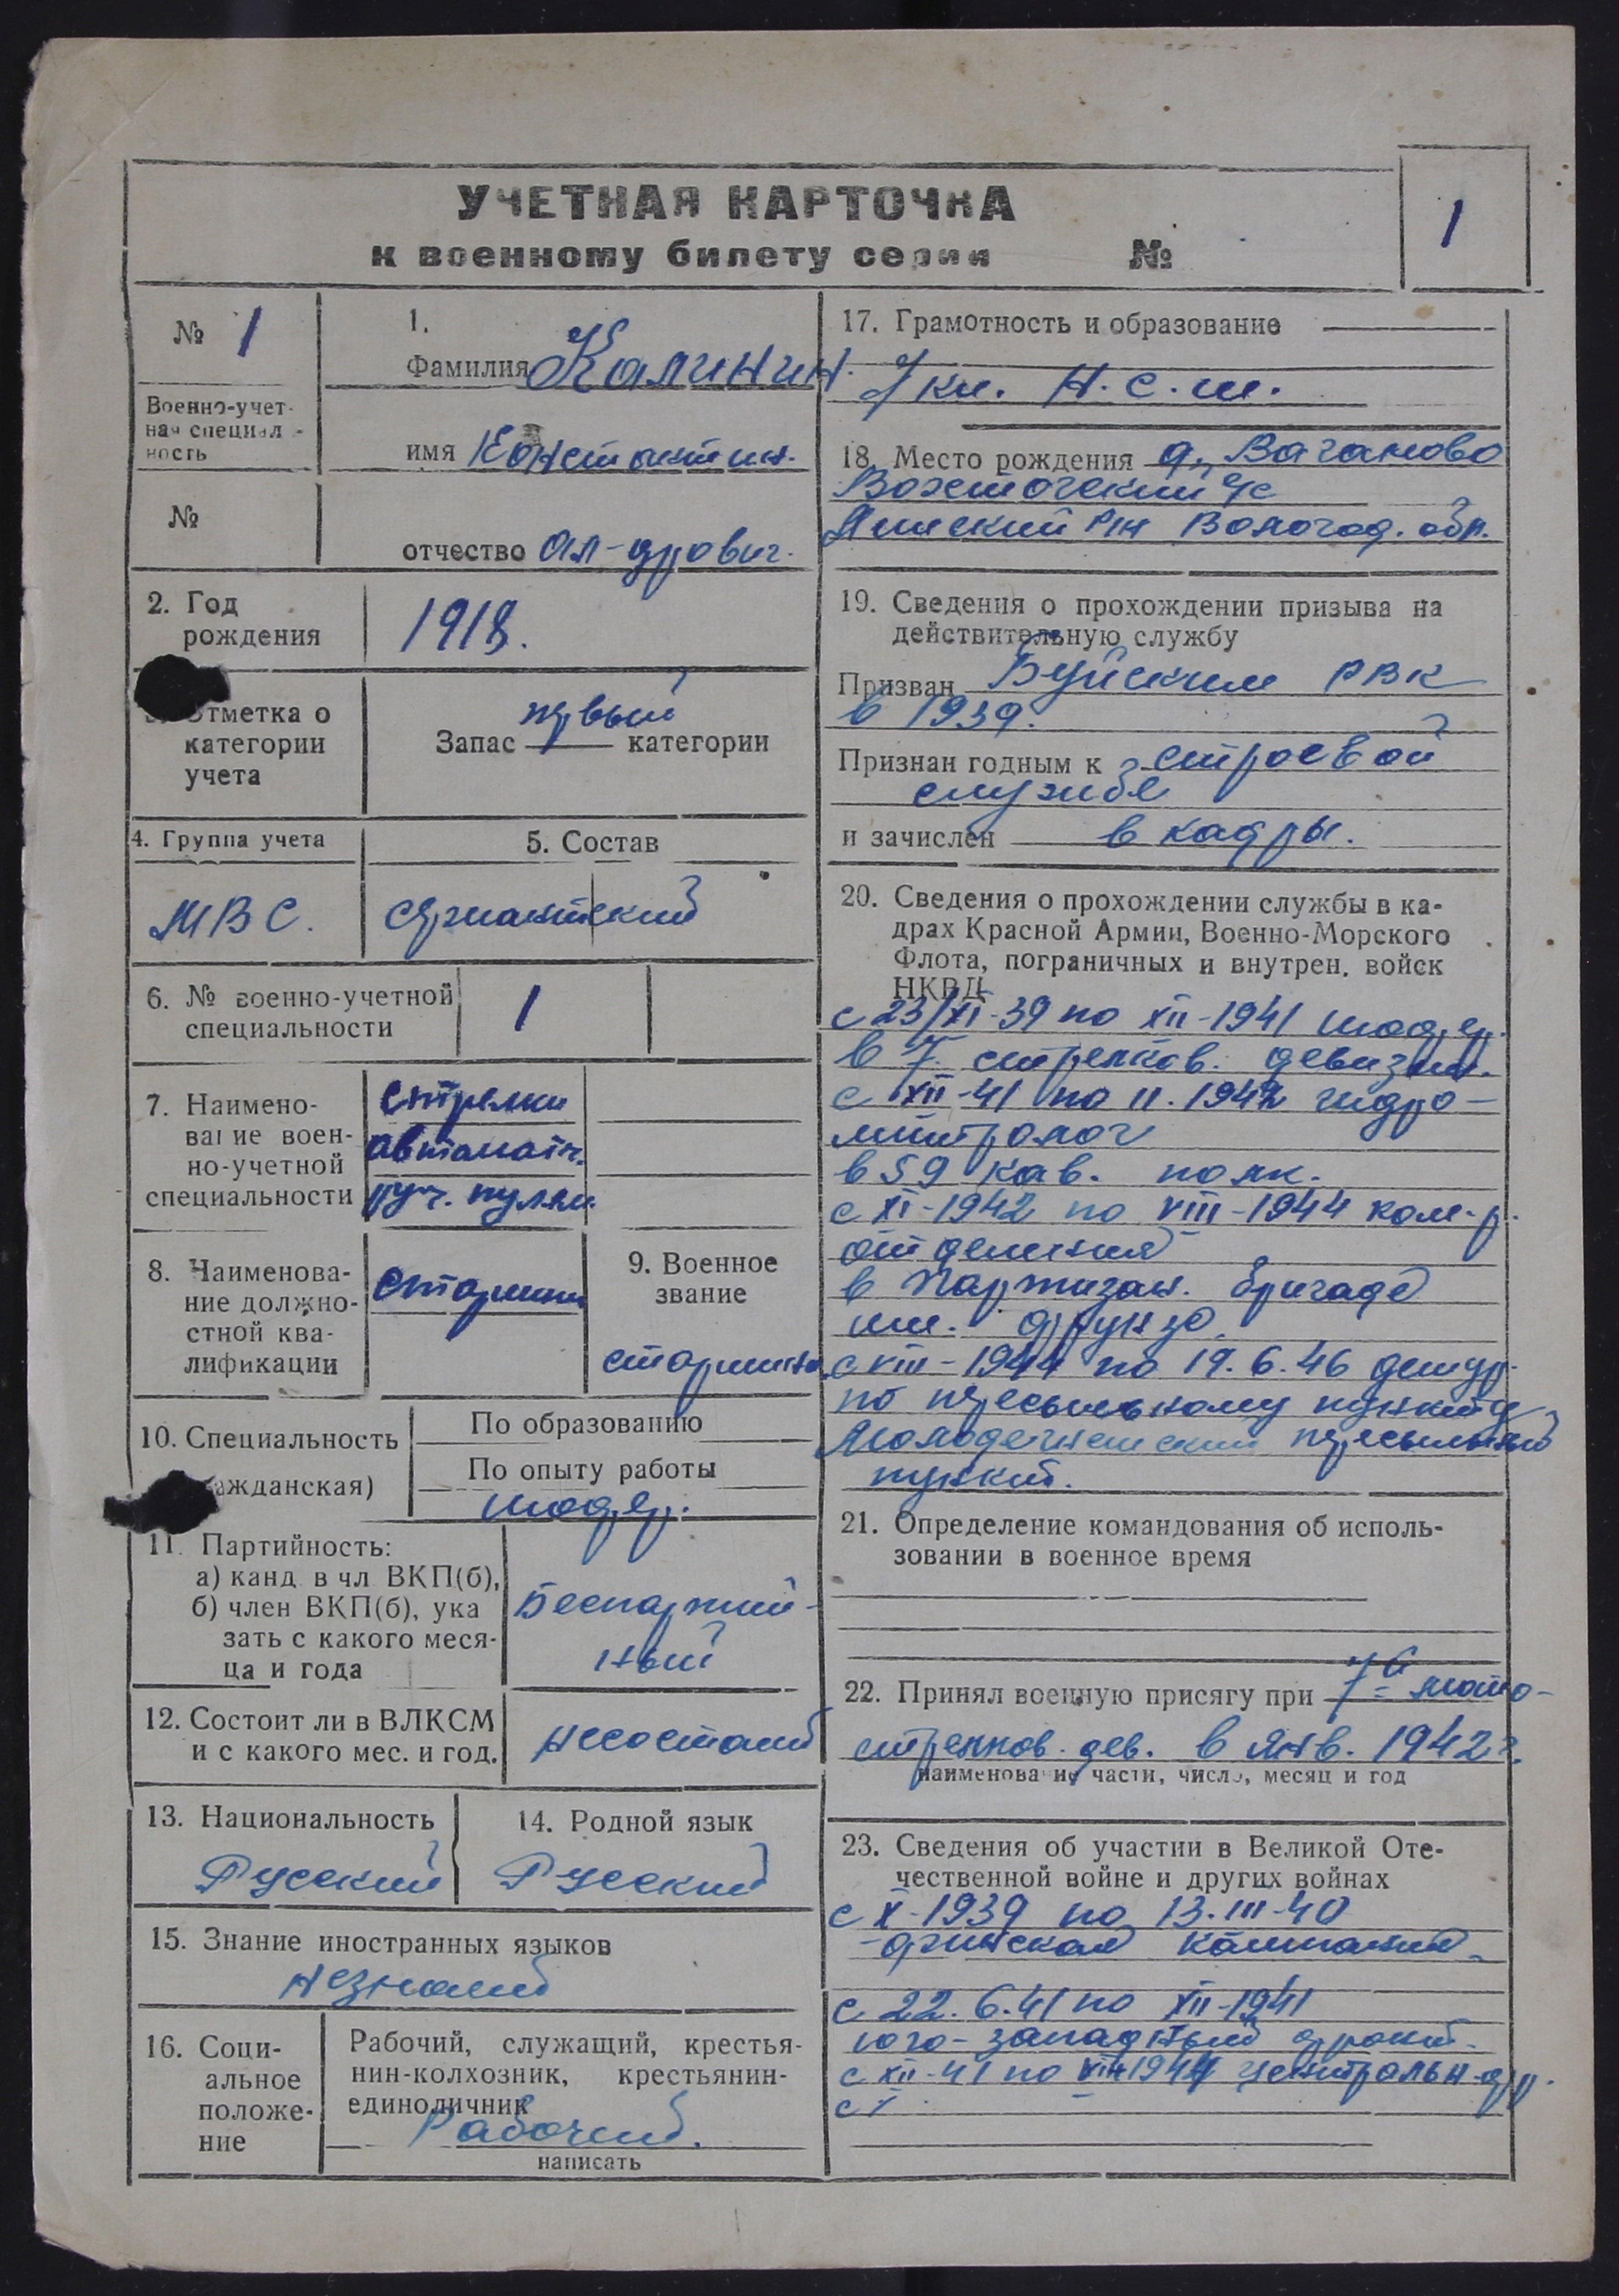 УЧЕТНАЯ КАРТОЧКА
к военному билету серии №
1
№ 1
Военно-учет-
ная специал-
ность
№
1.
Фамилия Калинин.
имя Константин.
отчество Ал-дрович.
2. Год
рождения
1918.
Отметка о
категории
учета
первый
Запас категории
4. Группа учета
МВС.
5. Состав
сержантский
6. № военно-учетной
специальности
1
7. Наимено-
вание воен-
но-учетной
специальности
Стрелки
автоматч.
руч. пулем.
8. Наименова-
ние должно-
стной ква-
лификации
старшина
9. Военное
звание
старшина
10. Специальность
ажданская)
По образованию
По опыту работы
шофер.
11. Партийность:
а) канд в чл ВКП(б),
б) член ВКП(б), ука
зать с какого меся-
ца и года
Беспартий-
ный
12. Состоит ли в ВЛКСМ
и с какого мес. и год.
несостоит
13. Национальность
Русский
14. Родной язык
Русский
15. Знание иностранных языков
незнает
16. Соци-
альное
положе-
ние
Рабочий, служащий, крестья-
нин-колхозник, крестьянин-
единоличник
Рабочий.
написать
17. Грамотность и образование
7 кл. Н.с.ш.
18. Место рождения д. Ваганово
с/с
р-н Вологод. обл.
19. Сведения о прохождении призыва на
действительную службу
Призван Буйским РВК
в 1939.
Признан годным к строевой
службе
и зачислен в кадры.
20. Сведения о прохождении службы в ка-
драх Красной Армии, Военно-Морского
Флота, пограничных и внутрен. войск
НКВД
с 23/XI-39 по XII-1941 шофер.
в 7 стрелков. девизии.
с XII-41 по 11.1942 гидро-
митролог
в 59 кав. полк.
с XI-1942 по VIII-1944 ком-р.
отделения
в Партизан. бригаде
им. Фрунзе.
с VIII-1944 по 19.6.46 дежур.
по пересыльному пункту
Молодечненский пересыльный
пункт.
21. Определение командования об исполь-
зовании в военное время
22. Принял военную присягу при 7-й мото-
стрелков. див. в Янв. 1942 г.
наименование части, число, месяц и год
23. Сведения об участии в Великой Оте-
чественной войне и других войнах
с X-1939 по 13.III-40
финская кампания
с 22.6.41 по XII-1941
юго-западный фронт.
с XII-41 по VIII 1944 централь-н фр.
с